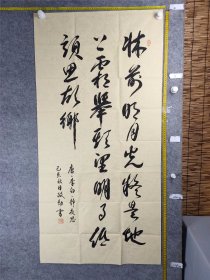 牀前明月光疑是地
上霜舉頭望明月低
頭思故鄉
唐李白静夜思
己亥秋月書